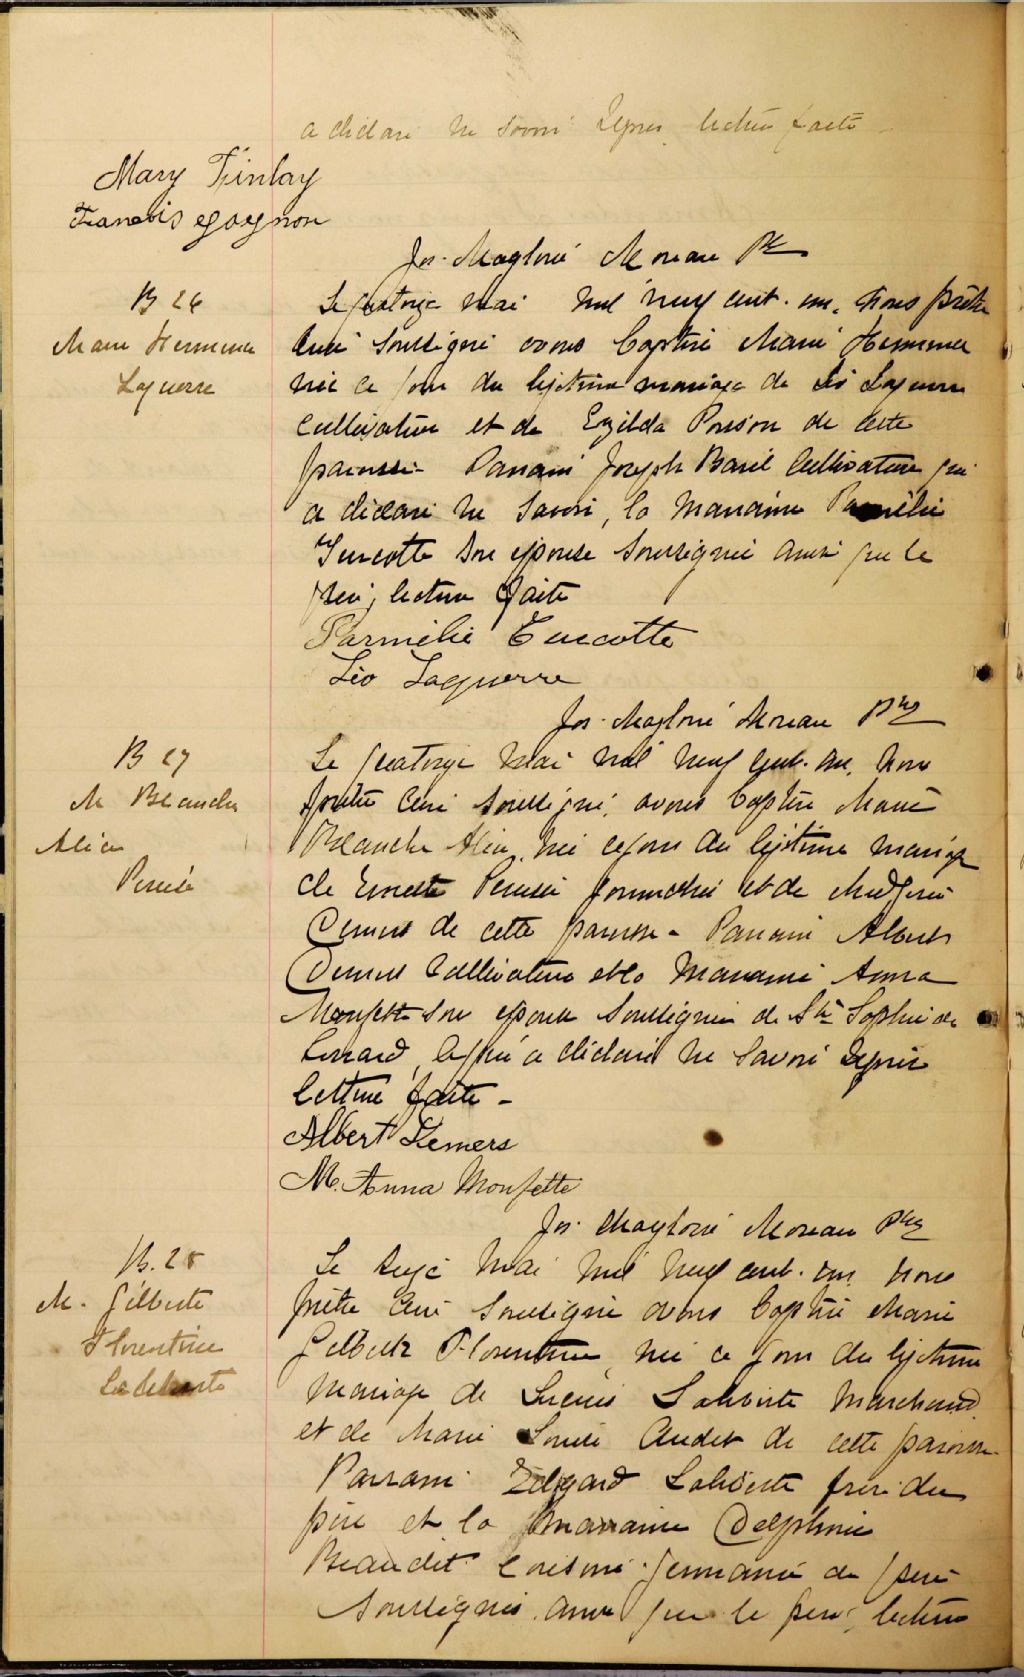 a déclaré ne savoir signer, lecture faite -
Mary Finlay
Francois gagnon
Jos. Magloire Moreau Ptre
B 26
Marie Hermine
Laguerre
Le quatorze mai mil neuf cent un, nous prêtre
curé soussigné avons baptisé Marie Hermine
née ce jour du légitime mariage de Léo Laguerre
cultivateur et de Exilda Poisson de cette
paroisse - Parrain Joseph Baril cultivateur qui
a déclaré ne savoir, la marraine Parmélie
Turcotte son épouse soussignée ainsi que le
père, lecture faite
Parmélie Turcotte
Léo Laguerre
Jos. Magloire Moreau Ptre
B 27
M Blanche
Alice
Le quatorze mai mil neuf cent un, nous
prêtre curé soussigné, avons baptisé Marie
Blanche Alice, née ce jour du légitime mariage
de Ernest journalier et de
Demers de cette paroisse - Parrain Albert
Demers cultivateur et la marraine Anna
Monfette son épouse soussignés de Ste Sophie de
Levrard, le père a déclaré ne savoir signer
lecture faite -
Albert Demers
M. Anna Monfette
Jos. Magloire Moreau Ptre
B. 28
M. Gilberte
Florentine
Laliberté
Le seize mai mil neuf cent un nous
prêtre curé soussigné avons baptisé Marie
Gilberte Florentine, née ce jour du légitime
mariage de Laliberté marchand
et de Marie Louise Audet de cette paroisse
Parrain Edgard Laliberté frère du
père et la marraine Delphine
Beaudet cousine germaine du père
soussignés ainsi que le père, lecture